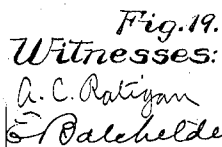 Fig. 19.
Witnesses:
A. C. Ratigan
Batchelde